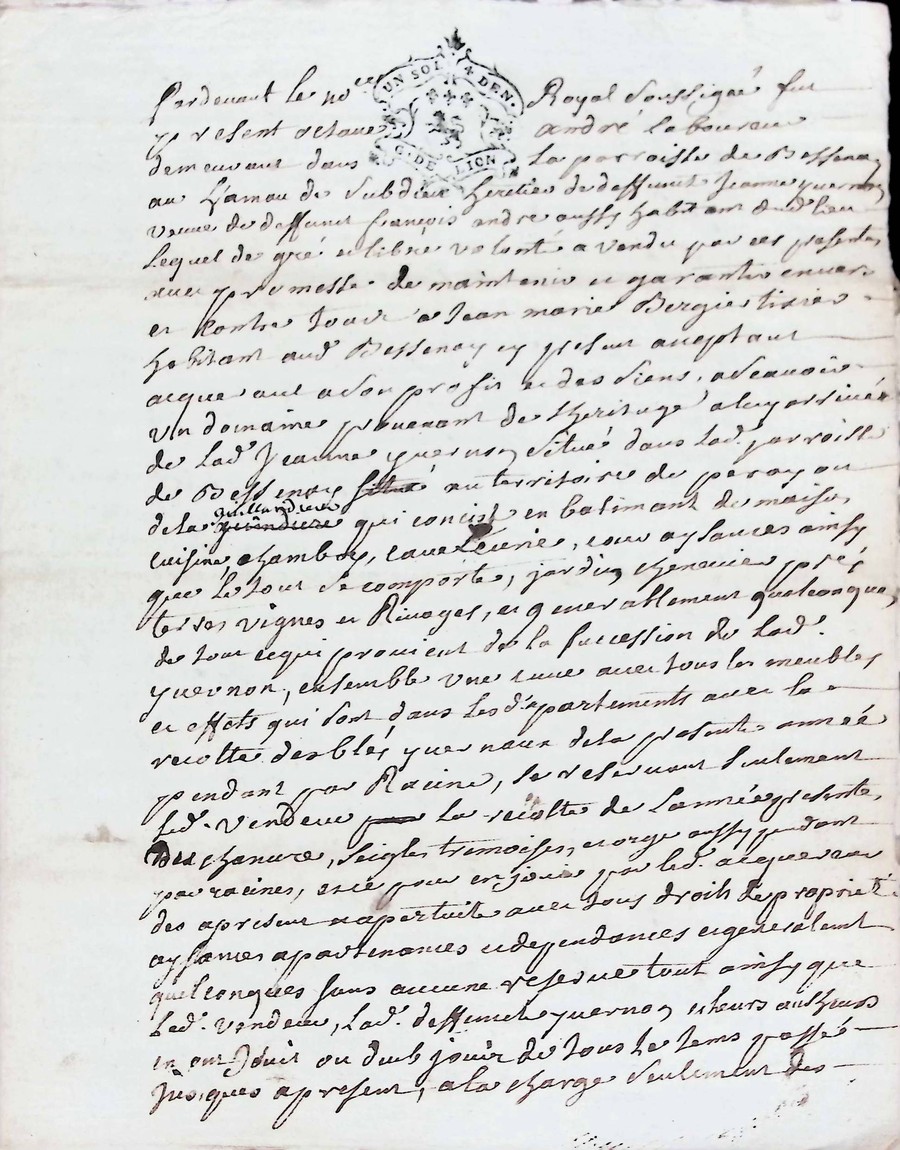 Pardevant le no.re Royal Soussigné fut
UN SOL DEN.
G. DE LION
present en sa andré laboureur
demeurant dans la parroisse de Bessenay
au hamau de Subdieu heritier de deffunte Jeanne yvernon
veuve de deffunt françois andre aussy habitant dud. lieu
Lequel de gré et libre volonté a vendu par ces presentes
avec promesse de maintenir et garantir envers
et contre tous a Jean marie Bergier tissier
habitant aud. Bessenay cy present acceptant
acquereur a son profit et des siens, a scavoir
un domaine provenant de lheritage a luy arrivée
de lad. Jeanne yvernon, situé dans lad. parroisse
de Bessenay situé au territoire du peray ou
guillardiere
de la qui consist en batiment de maison
cuisine, chambres, cave, Ecurie, cour aysances ainsy
que le tout se comporte, jardin, cheneviere, pré,
terres vignes et Rivages, et generallement quelconques
de tout ce qui provient de la succession de lad.
yvernon, ensemble une cuve avec tous les meubles
et effets qui sont dans lesd. apartements avec la
recolte des blés yvernaux de la presente année
pendant par Racine, se reservant seulement
led. vendeur la recolte de l'année presente
Des chanvre, seigles tremoises, et orge aussy pendant
par racines, et ce pour en jouir par led. acquereur
des apresent a perpetuité avec tous droits de proprieté
aysances appartenances et dependances et generalement
quelconques sans aucune reserve tout ainsy que
led. vendeur, lad. deffunte yvernon et leurs autheurs
en ont Jouit ou dub jouir de tous le tems passée
Jusques apresent, a la charge seulement des